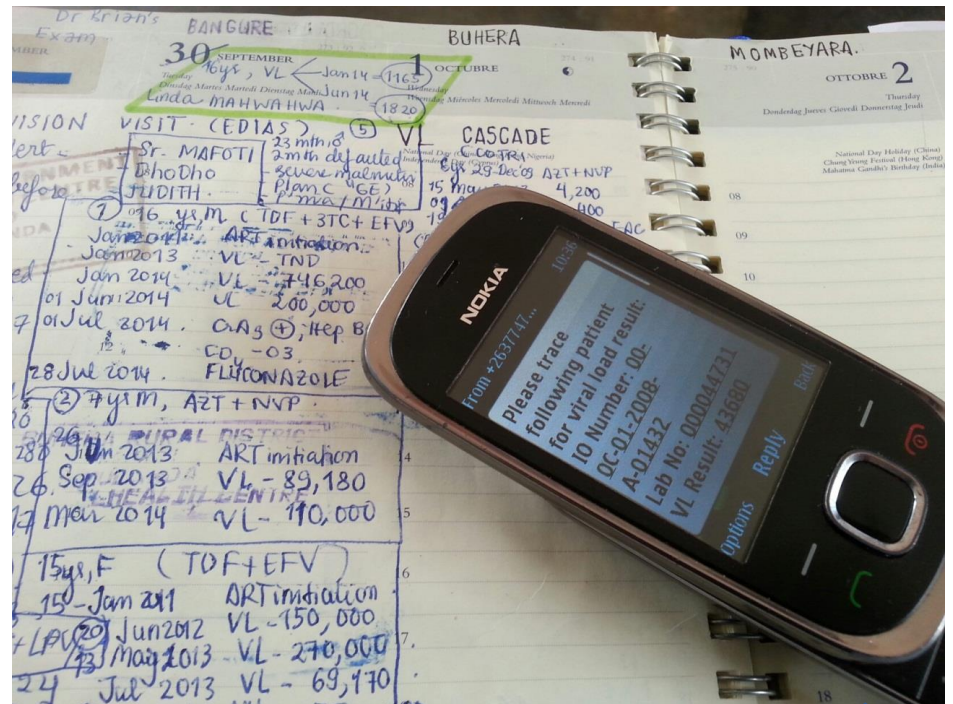 Dr Brian's
Exam
BANGURE
BUHERA
MOMBEYARA.
30 SEPTEMBER
Tuesday
16ys, VL
Jan 14 = 1165
Jun 14 = 1820
Linda MAHWAHWA
1 OCTUBRE
Wednesday
Miércoles Mercoledì Mittwoch Mercredi
OTTOBRE 2
Thursday
Donderdag Jueves Giovedì Donnerstag Jeudi
National Day Holiday (China)
Chung Yeung Festival (Hong Kong)
Mahatma Gandhi's Birthday (India)
VISIT. (EDIAS)
Sr. MAFOTI
DhoDho
JUDITH
23 mth,♂
2mth defaulted
severe malnutri
Plan C (GE)
5 VL CASCADE
6ys 29 Dec 09 AZT + NVP
4,200
400
EAC
1 16 ys, M (TDF + 3TC + EFV)
ART initiation
Jan 2013 VL - TND
Jan 2014 VL - 746,200
01 Jun 2014 VL 200,000
01 Jul 2014. CrAg +; Hep B
CD4 - 03
28 Jul 2014. FLUCONAZOLE
2 7ysM, AZT + NVP.
RURAL DISTRICT
HEALTH CENTRE
Jun 2013 ART initiation
Sep 2013 VL - 89,180
Mar 2014 VL - 110,000
15ys, F (TDF + EFV)
15 - Jan 2011 ART initiation
20 Jun 2012 VL - 150,000
13 May 2013 VL - 270,000
24 Jul 2013 VL - 69,170
08
09
10
14
15
16
17
18
NOKIA
10:36
From +2637747...
Please trace
following patient
for viral load result:
IO Number: 00-
QC-01-2008-
A-01432
Lab No: 000044731
VL Result: 43680
Options Reply Back